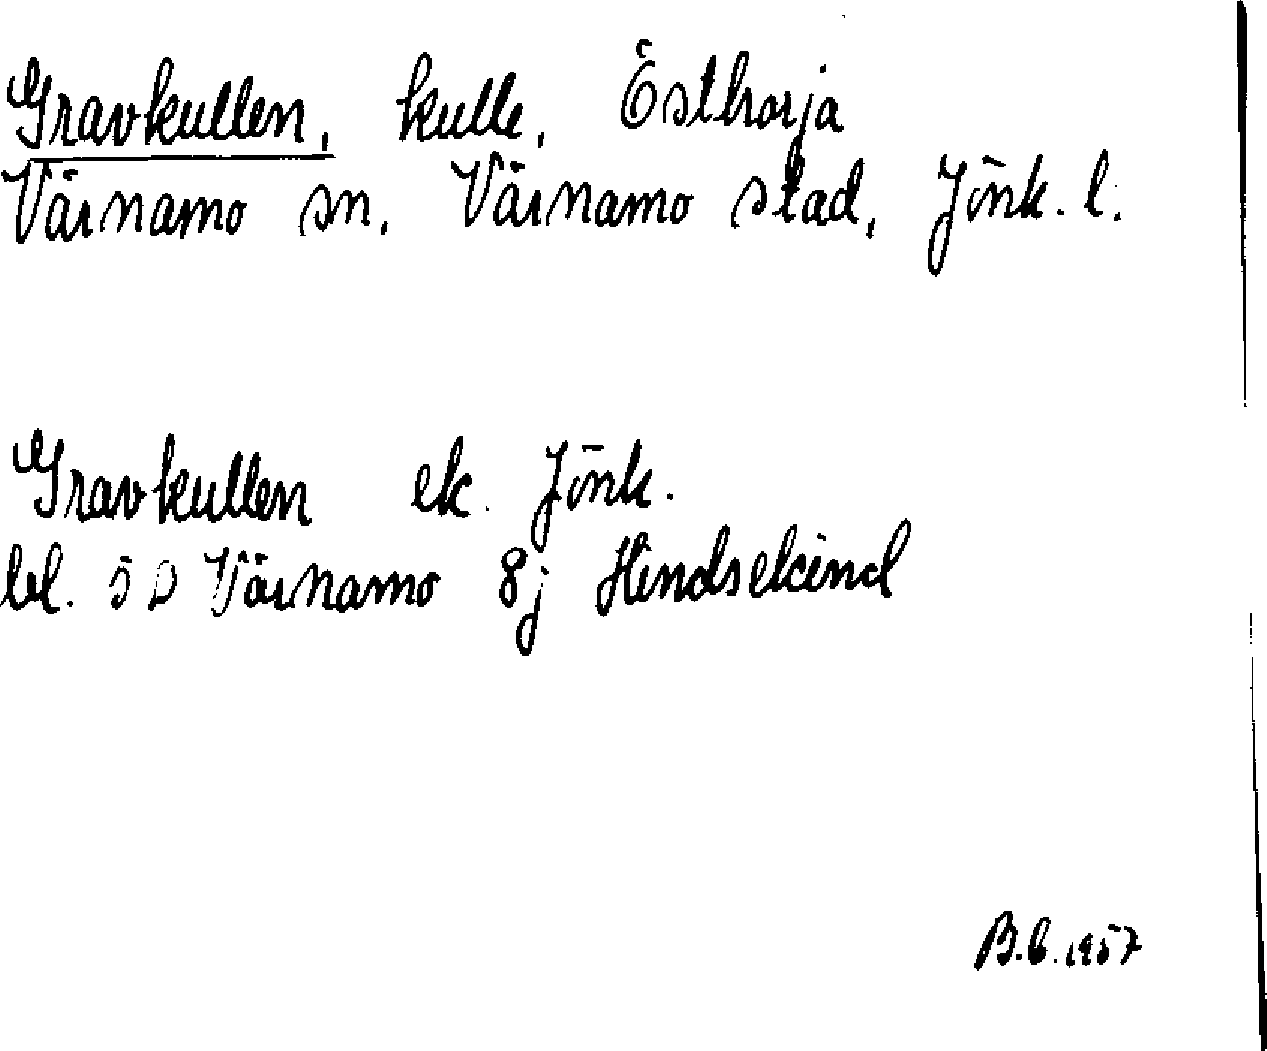 Gravkullen, kulle, Östhorja
Värnamo sn, Värnamo stad, Jönk. l.
Gravkullen ek. Jönk.
bl. 5 D Värnamo 8j Hindsekind
B.b. 1957